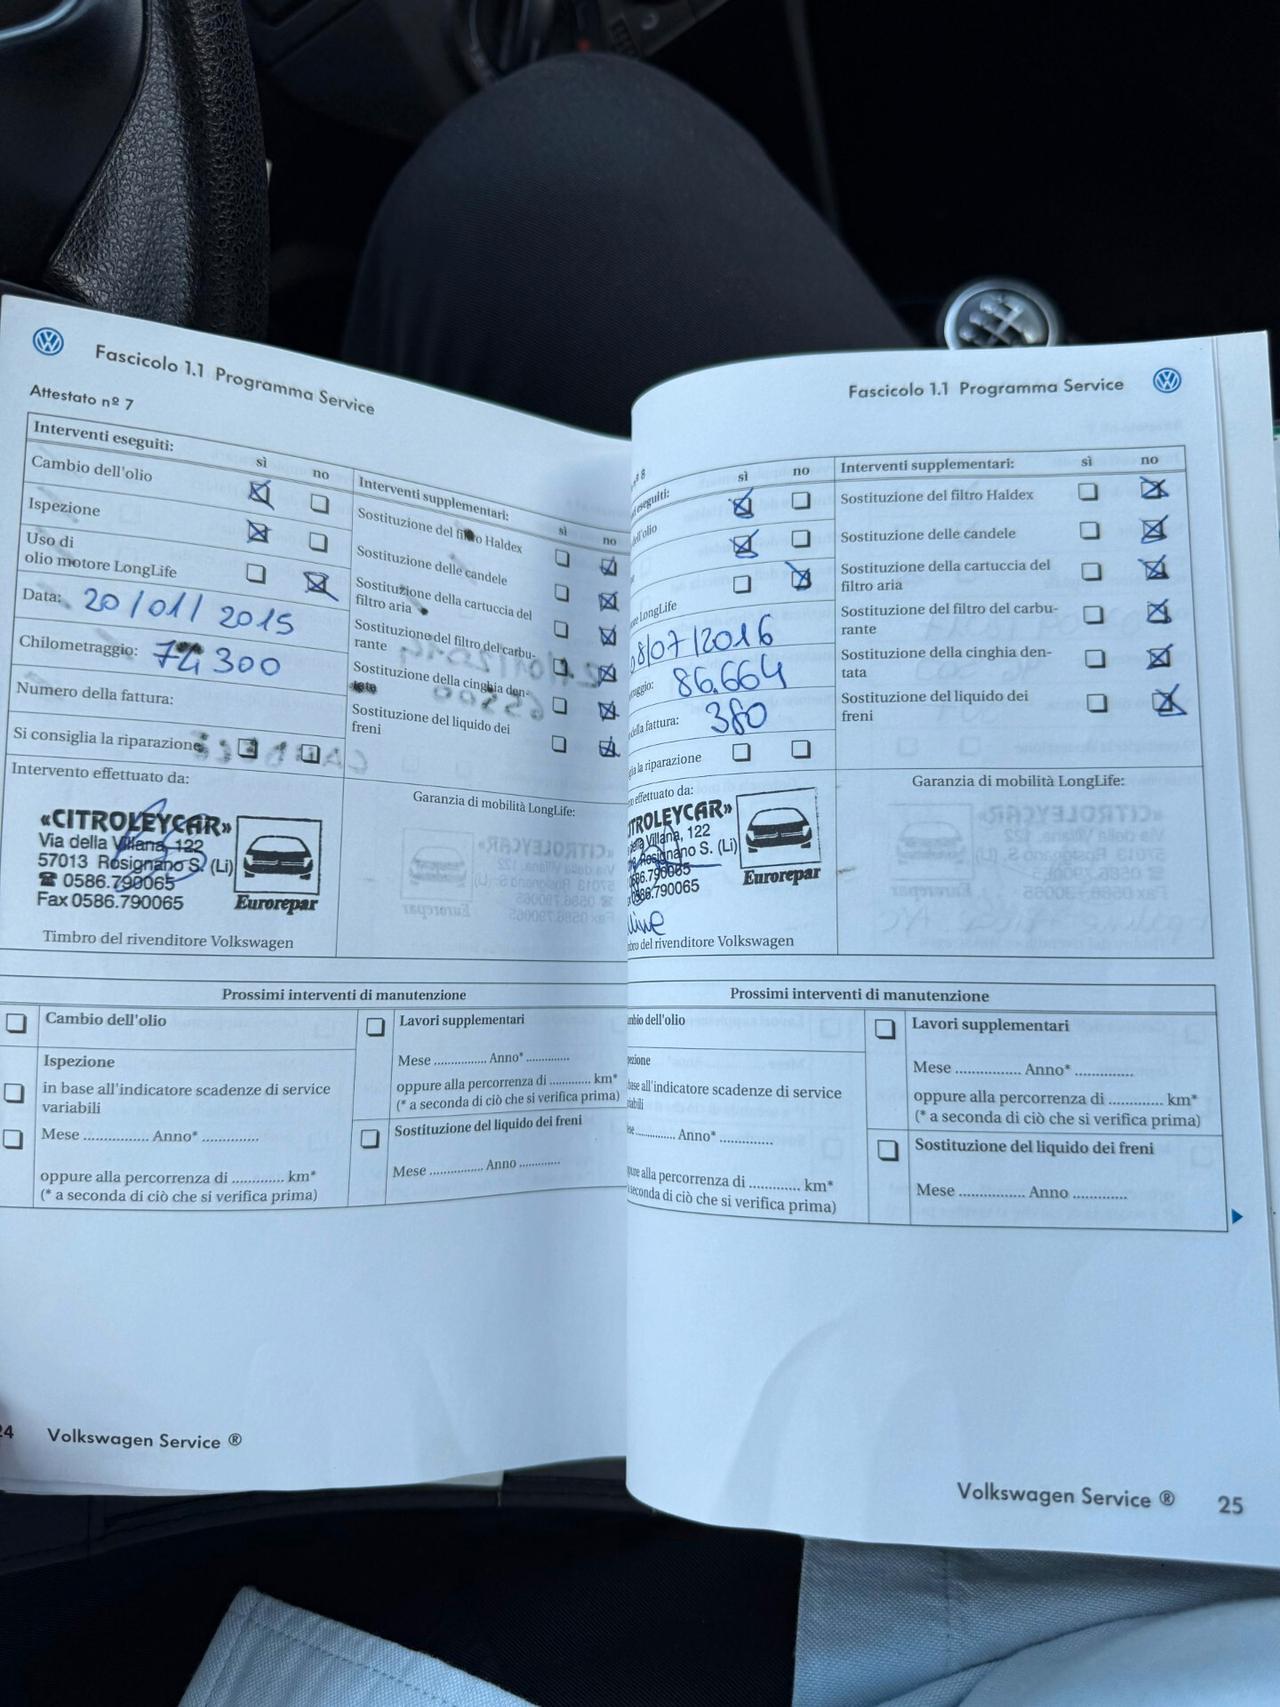 Fascicolo 1.1 Programma Service
Attestato nº 7
Interventi eseguiti:
sì no
Cambio dell'olio
Ispezione
Uso di
olio motore LongLife
Data: 20/01/2015
Chilometraggio: 74 300
Numero della fattura:
Si consiglia la riparazione
Intervento effettuato da:
«CITROLEYCAR»
Via della Villana, 122
57013 Rosignano S. (Li)
☎ 0586.790065
Fax 0586.790065
Eurorepar
Timbro del rivenditore Volkswagen
Interventi supplementari:
sì no
Sostituzione del filtro Haldex
Sostituzione delle candele
Sostituzione della cartuccia del
filtro aria
Sostituzione del filtro del carbu-
rante
Sostituzione della cinghia den-
tata
Sostituzione del liquido dei
freni
Garanzia di mobilità LongLife:
Prossimi interventi di manutenzione
Cambio dell'olio
Ispezione
in base all'indicatore scadenze di service
variabili
Mese ................ Anno* ..............
oppure alla percorrenza di ............. km*
(* a seconda di ciò che si verifica prima)
Lavori supplementari
Mese ............. Anno* .............
oppure alla percorrenza di ............ km*
(* a seconda di ciò che si verifica prima)
Sostituzione del liquido dei freni
Mese ............... Anno ............
24 Volkswagen Service ®
Fascicolo 1.1 Programma Service
8
eseguiti:
sì no
dell'olio
LongLife
08/07/2016
86.664
della fattura: 380
la riparazione
effettuato da:
TROLEYCAR»
della Villana, 122
Rosignano S. (Li)
586.790065
586.790065
Eurorepar
del rivenditore Volkswagen
Interventi supplementari:
sì no
Sostituzione del filtro Haldex
Sostituzione delle candele
Sostituzione della cartuccia del
filtro aria
Sostituzione del filtro del carbu-
rante
Sostituzione della cinghia den-
tata
Sostituzione del liquido dei
freni
Garanzia di mobilità LongLife:
Prossimi interventi di manutenzione
dell'olio
all'indicatore scadenze di service
............. Anno* ..............
alla percorrenza di ............. km*
seconda di ciò che si verifica prima)
Lavori supplementari
Mese ................ Anno* ..............
oppure alla percorrenza di ............. km*
(* a seconda di ciò che si verifica prima)
Sostituzione del liquido dei freni
Mese ................ Anno .............
Volkswagen Service ® 25